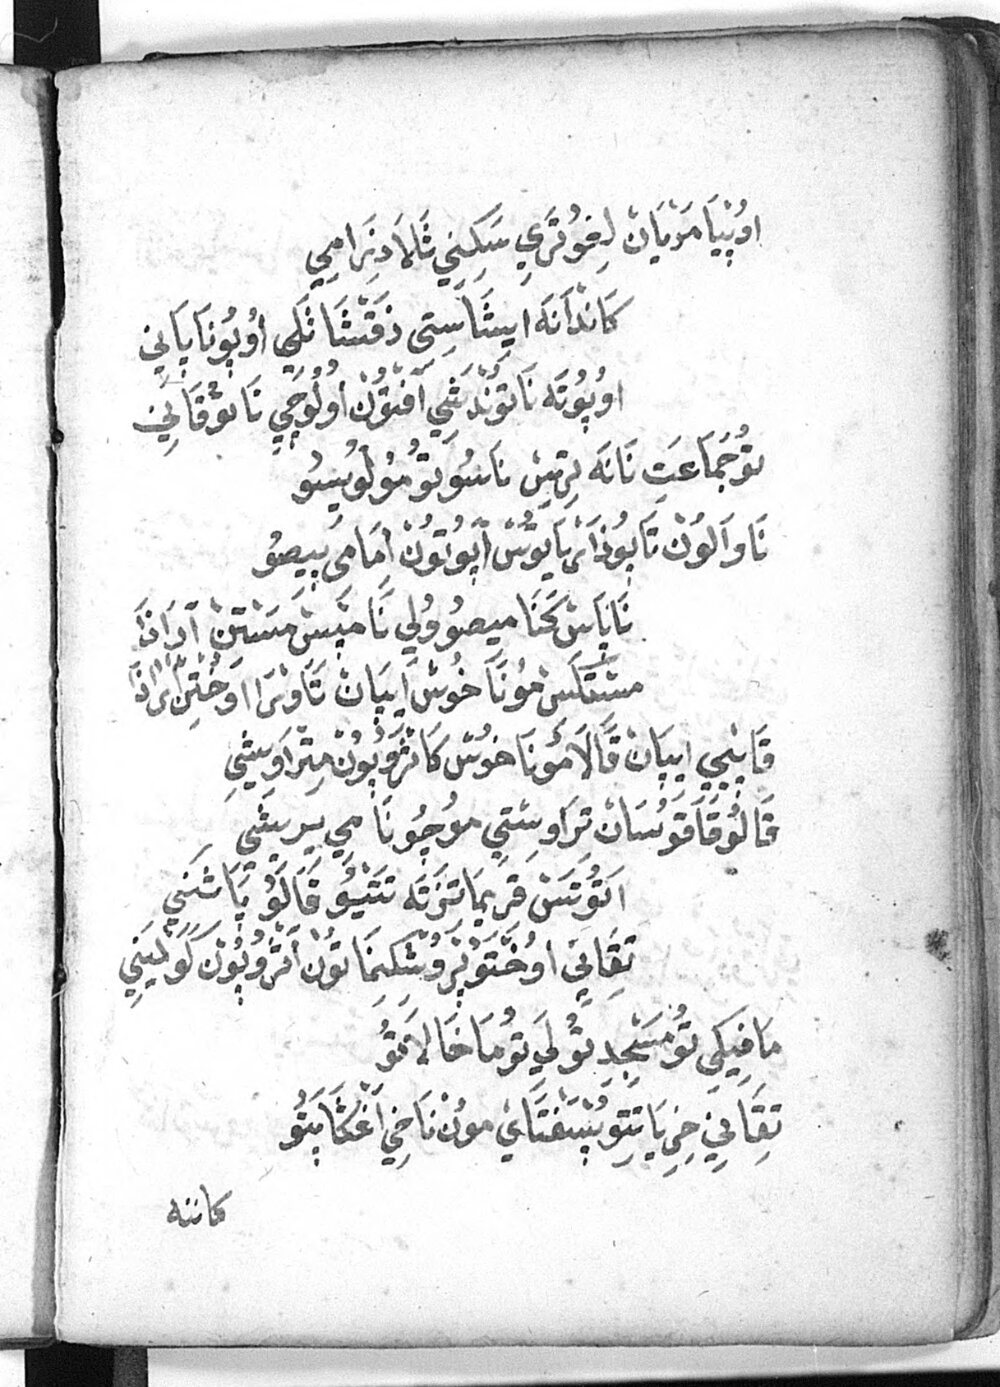 اوُپِيَا مَرْيَانْ لِغوُتَرِي سَكِنِي ثَلاَ دِرَامِي
كَانْدَانَه اِيثَاسِتِي دَقَثَا نَكِي اوُپوُنَا پَانِي
اوُپوُتَه نَا توُنْدَشِي آفْتوُنْ اوُلوُچِي نَا توُقَانِي
توُ جَمَاعَتِ نَانَه پِرتِسْ نَاسوُ توُ موُلوُيسوُ
نَاوَالوُنْ تَاپوُدَارْيَا توُسْ آپوُتوُنْ اِمَامِي پِيصوُ
نَا پَاسْ كَخَنَا مِيصوُ وُلِي نَا مِپَسْ مَسْتِنْ آرَادَا
مِسْتَكَسْ موُنَا خوُسْ اِيپَانْ تَاوْرَا اوُخْتِنْ آرَادَا
قَاپْيِي اِيپَانْ قَالَا موُنَا خوُسْ كَانْرَوُپوُنْ مِتْرَاوِيشِي
قَالوُقَا قوُسَانْ تَرَاوِسْتِي موُچوُنَا مِي پِرِيشِي
اَتوُتَسْ قَرِيمَا تَزَتَه تَتْيوُ قَالَوُ پَاشَنِي
تِقَانِي اوُخْتوُپْرَوُشْكِمَا توُنْ آنْرَوُپوُنْ كَوُلَيَنِي
مَافِيكِي توُ مَسْجِدِ توُلَي توُمَا خَالاَ تَوُ
تِقَانِي خِرِيَا تِتوُپِسَفْتَايْ موُنْ نَاخِي آغْكَاپِتوُ
كاننه